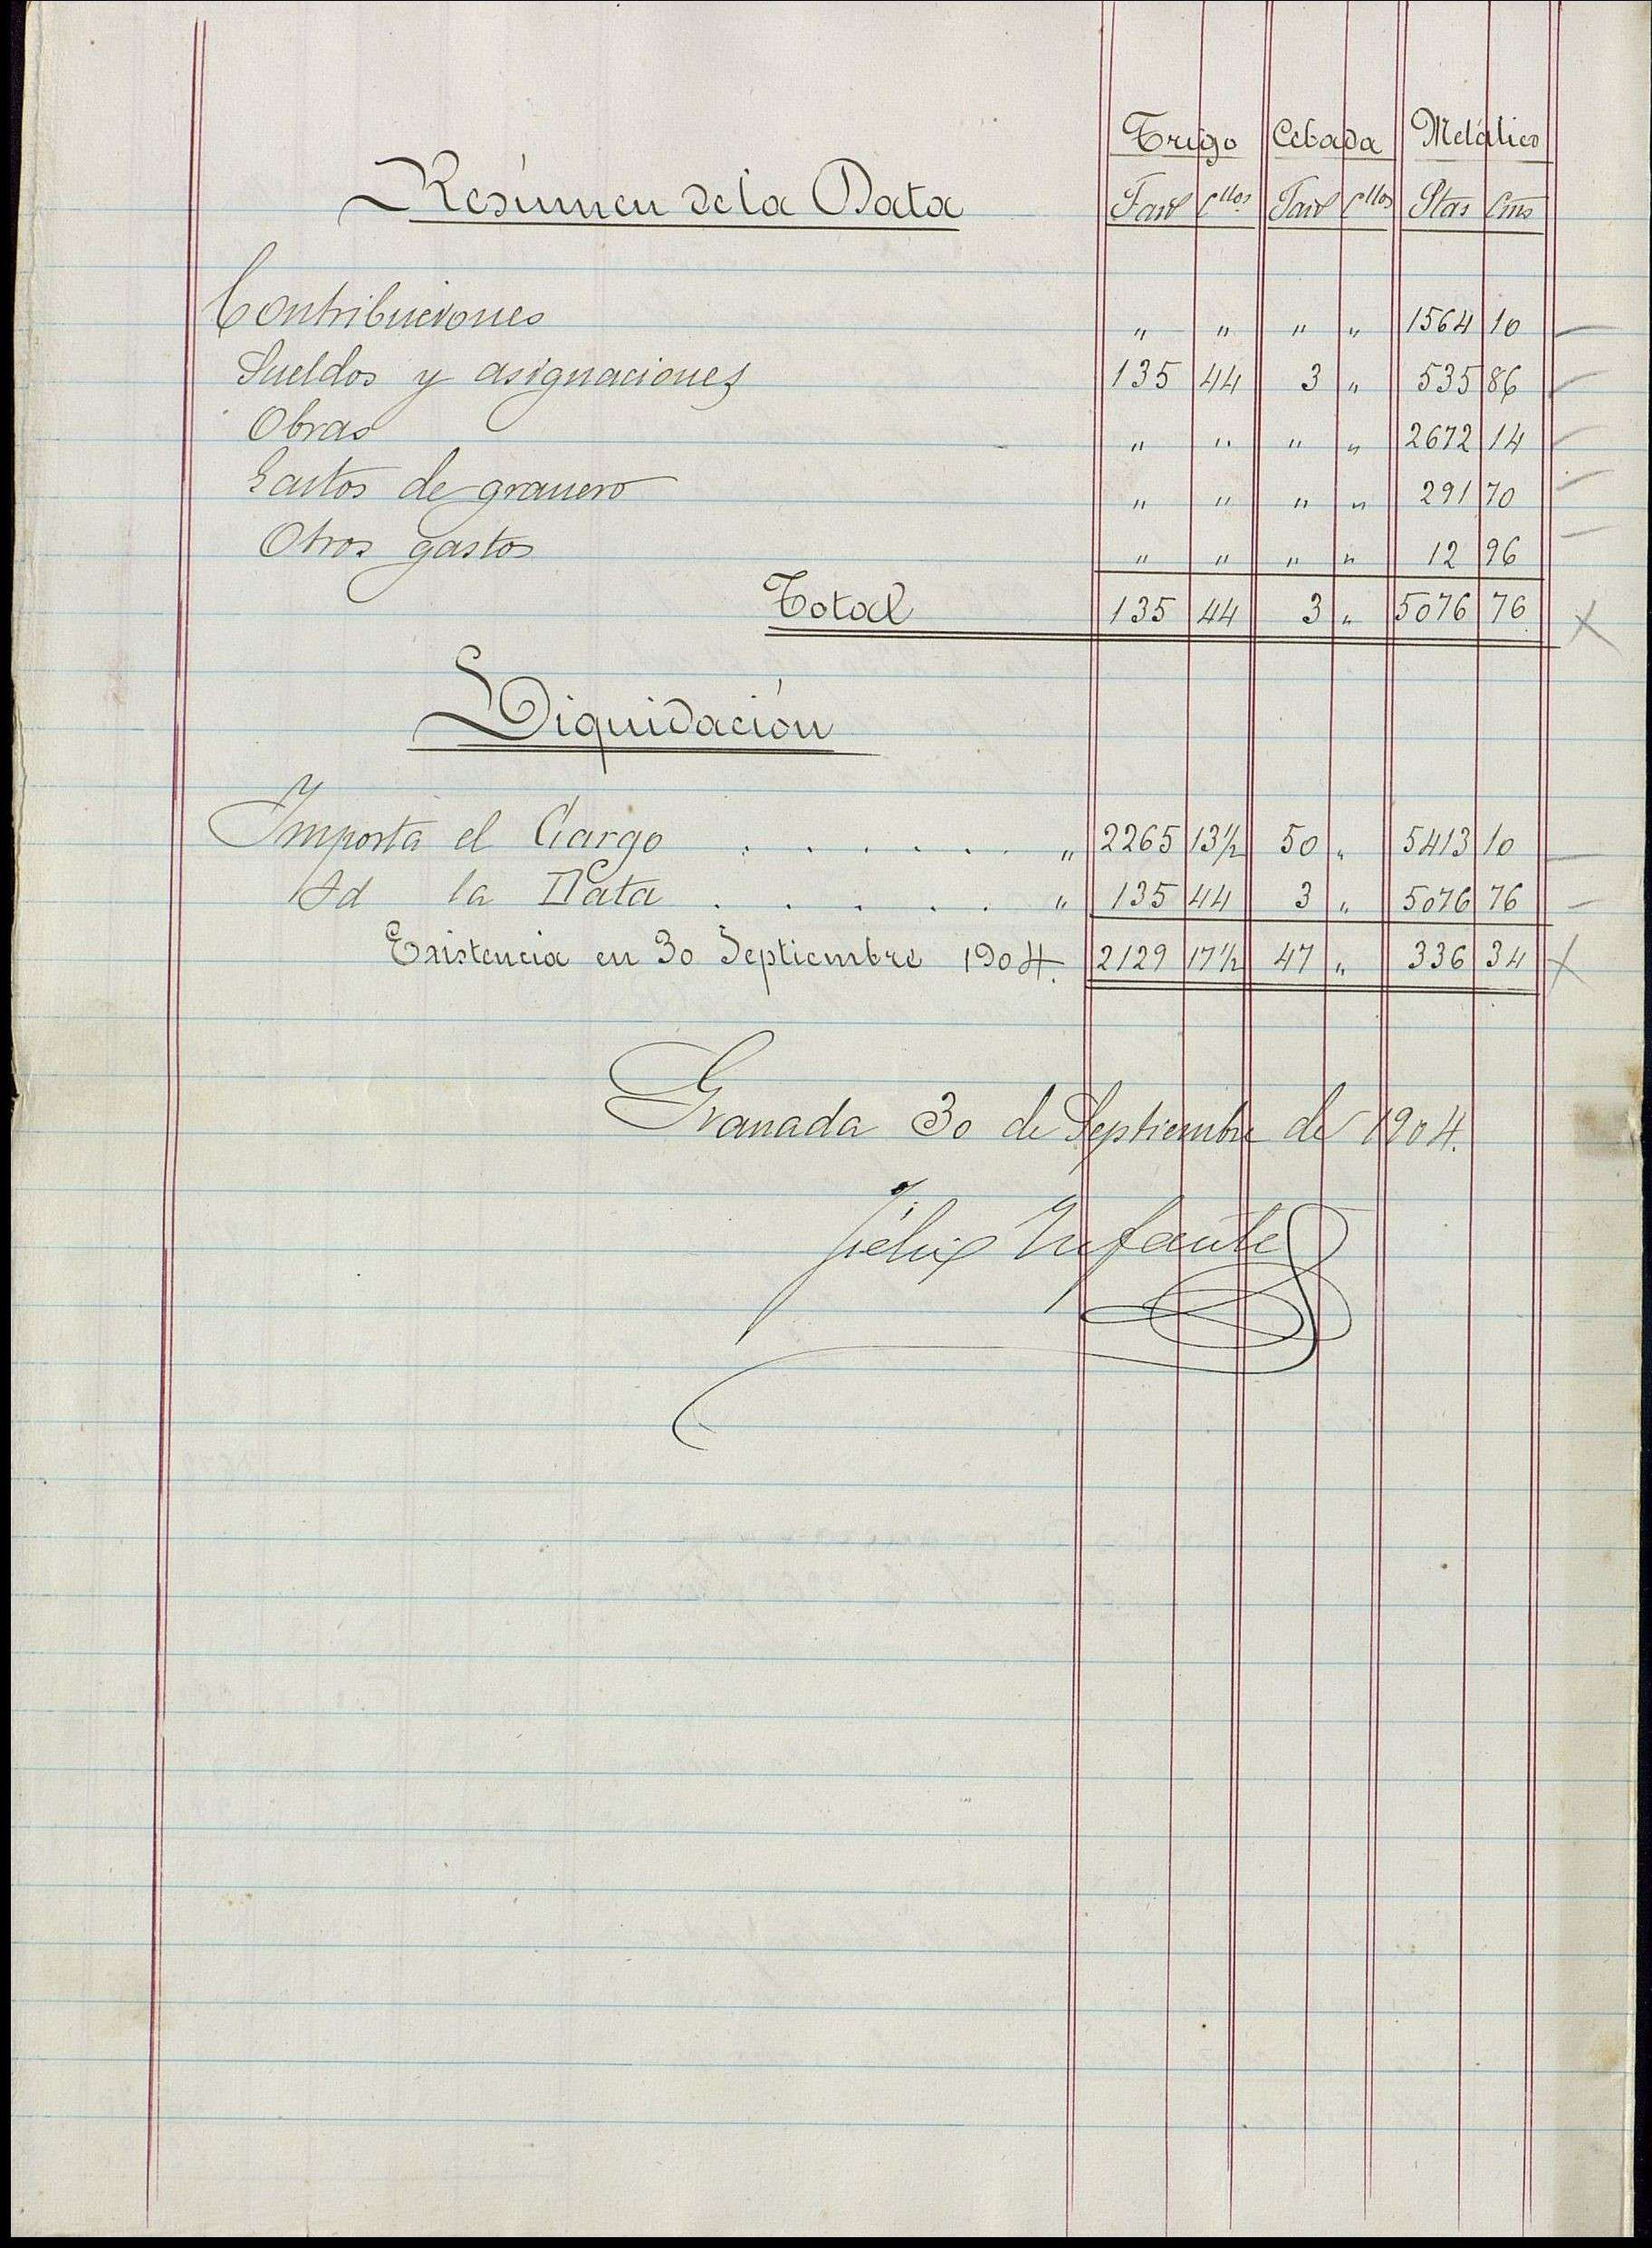 Trigo Cebada Metálico
Resúmen de la Data Fans Cllos Fans Cllos Ptas Cms
Contribuciones " " " " 1564 10
Sueldos y asignaciones 135 44 3 " 535 86
Obras " " " " 2672 14
Gastos de granero " " " " 291 70
Otros gastos " " " " 12 96
Total 135 44 3 " 5076 76
Liquidación
Importa el Cargo . . . . . . " 2265 13½ 50 " 5413 10
Id la Data . . . . . " 135 44 3 " 5076 76
Existencia en 30 Septiembre 1904. 2129 17½ 47 " 336 34
Granada 30 de Septiembre de 1904.
Félix Infante